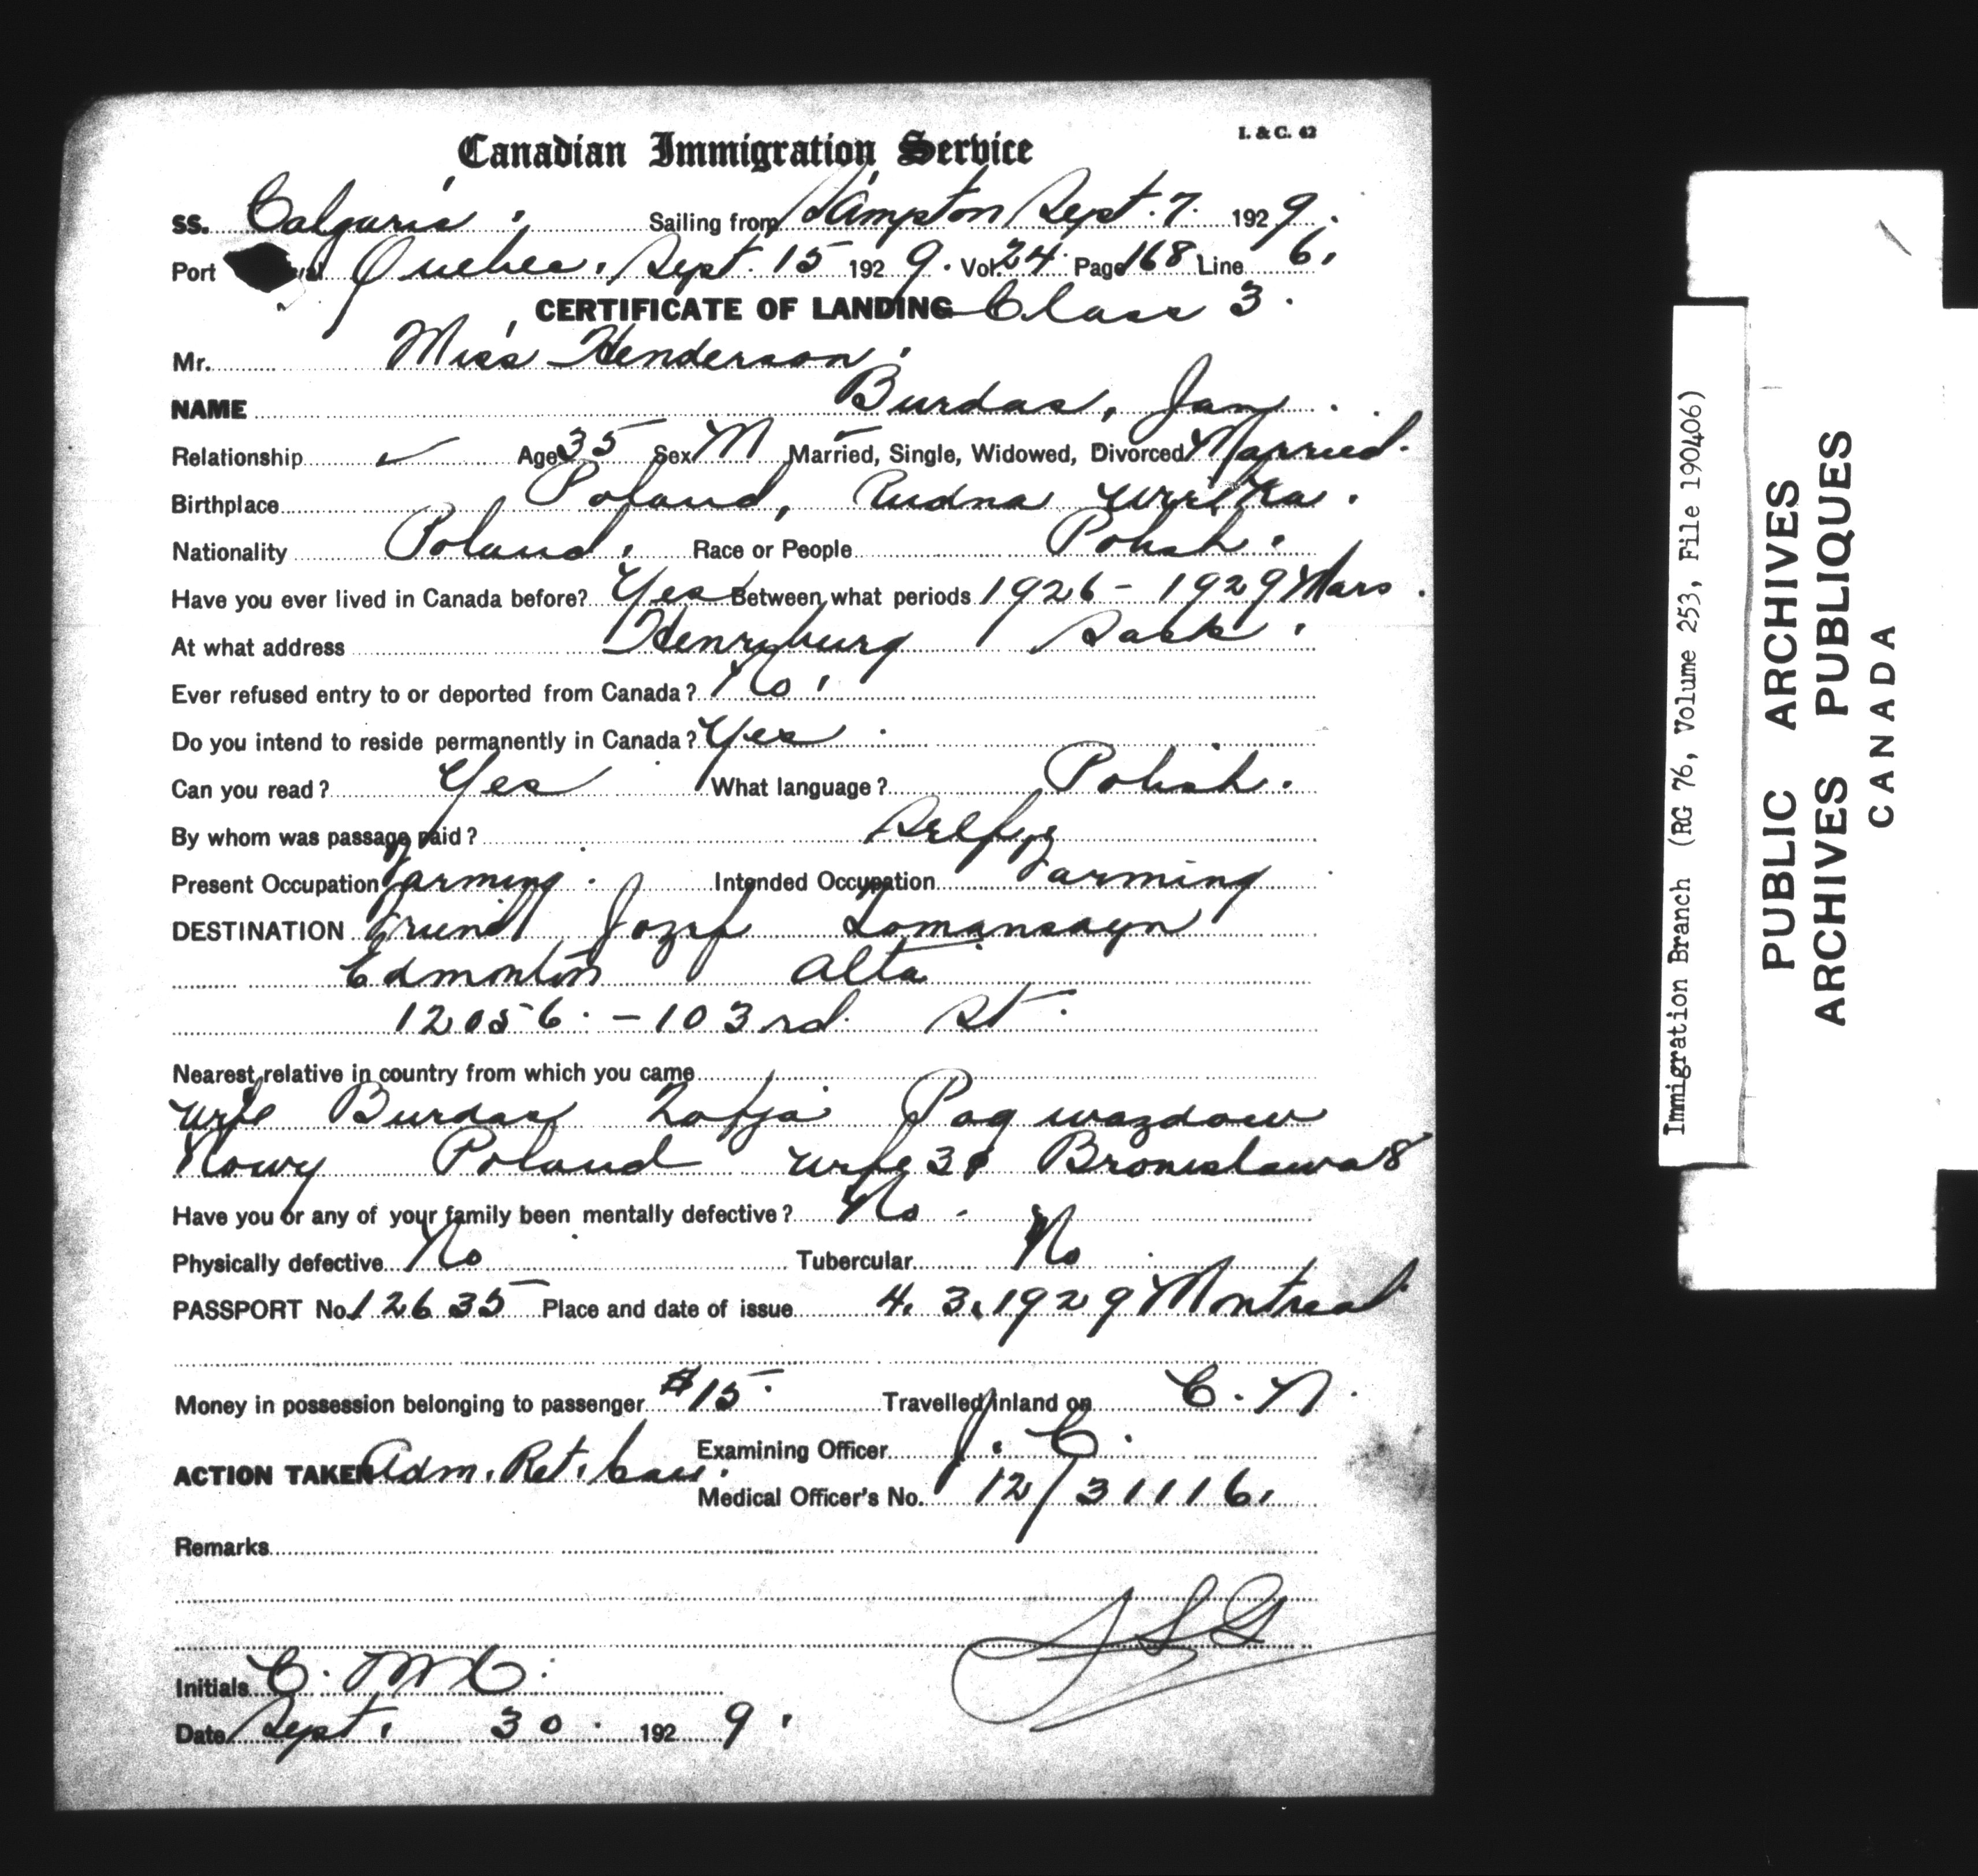 I. & C. 42
Canadian Immigration Service
SS. Calgaric. Sailing from S'ampton Sept. 7. 1929.
Port Quebec. Sept. 15 1929. Vol. 24. Page 168 Line 6.
CERTIFICATE OF LANDING Class 3.
Mr. Miss Henderson.
NAME Burdas, Jan.
Relationship ✓ Age 35 Sex M Married, Single, Widowed, Divorced Married.
Birthplace Poland, Rudna
Nationality Poland. Race or People Polish.
Have you ever lived in Canada before? Yes Between what periods 1926 - 1929 Mars.
At what address Henryburg Sask.
Ever refused entry to or deported from Canada? No.
Do you intend to reside permanently in Canada? Yes.
Can you read? Yes What language? Polish.
By whom was passage paid? Self
Present Occupation farming. Intended Occupation Farming
DESTINATION friend Jozef
Edmonton Alta
12056. - 103rd. St.
Nearest relative in country from which you came
wife Burdas Zofja Pag wazdow
Nowy Poland wife 30 Bronislawa 8
Have you or any of your family been mentally defective? No.
Physically defective No Tubercular No
PASSPORT No. 12635 Place and date of issue 4. 3. 1929 Montreal
Money in possession belonging to passenger $15. Travelled inland on C. N.
Examining Officer J. C.
ACTION TAKEN Adm. Ret. Can.
Medical Officer's No. 12/31116.
Remarks
Initials C. McC.
Date Sept. 30. 1929.
Immigration Branch (RG 76, Volume 253, File 190406)
PUBLIC ARCHIVES
ARCHIVES PUBLIQUES
CANADA